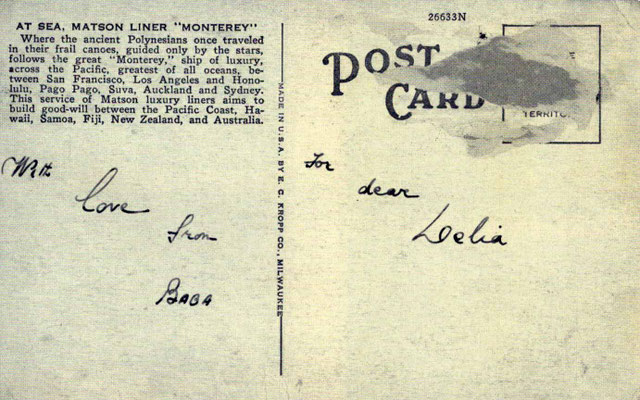 26633N
AT SEA, MATSON LINER "MONTEREY"
Where the ancient Polynesians once traveled
in their frail canoes, guided only by the stars,
follows the great "Monterey," ship of luxury,
across the Pacific, greatest of all oceans, be-
tween San Francisco, Los Angeles and Hono-
lulu, Pago Pago, Suva, Auckland and Sydney.
This service of Matson luxury liners aims to
build good-will between the Pacific Coast, Ha-
waii, Samoa, Fiji, New Zealand, and Australia.
With
Love
from
BABA
MADE IN U.S.A. BY E. C. KROPP CO., MILWAUKEE
POST
CARD
For
dear
Delia